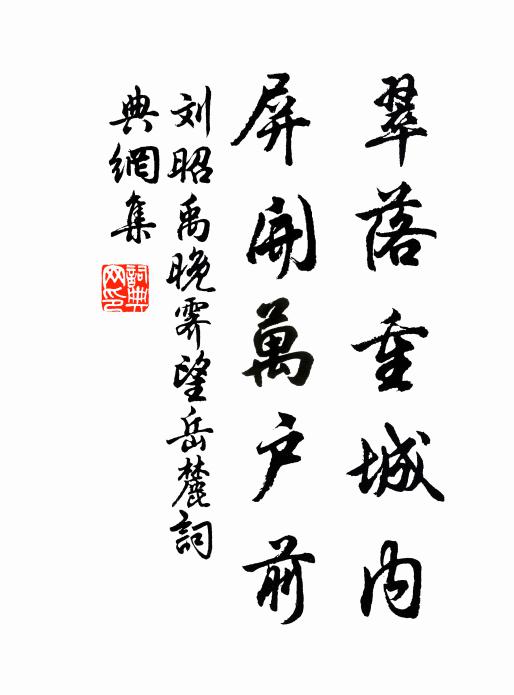 翠落重城内
屏開萬户前
刘昭禹晚霽望岳麓詞
典網集
詞典网印